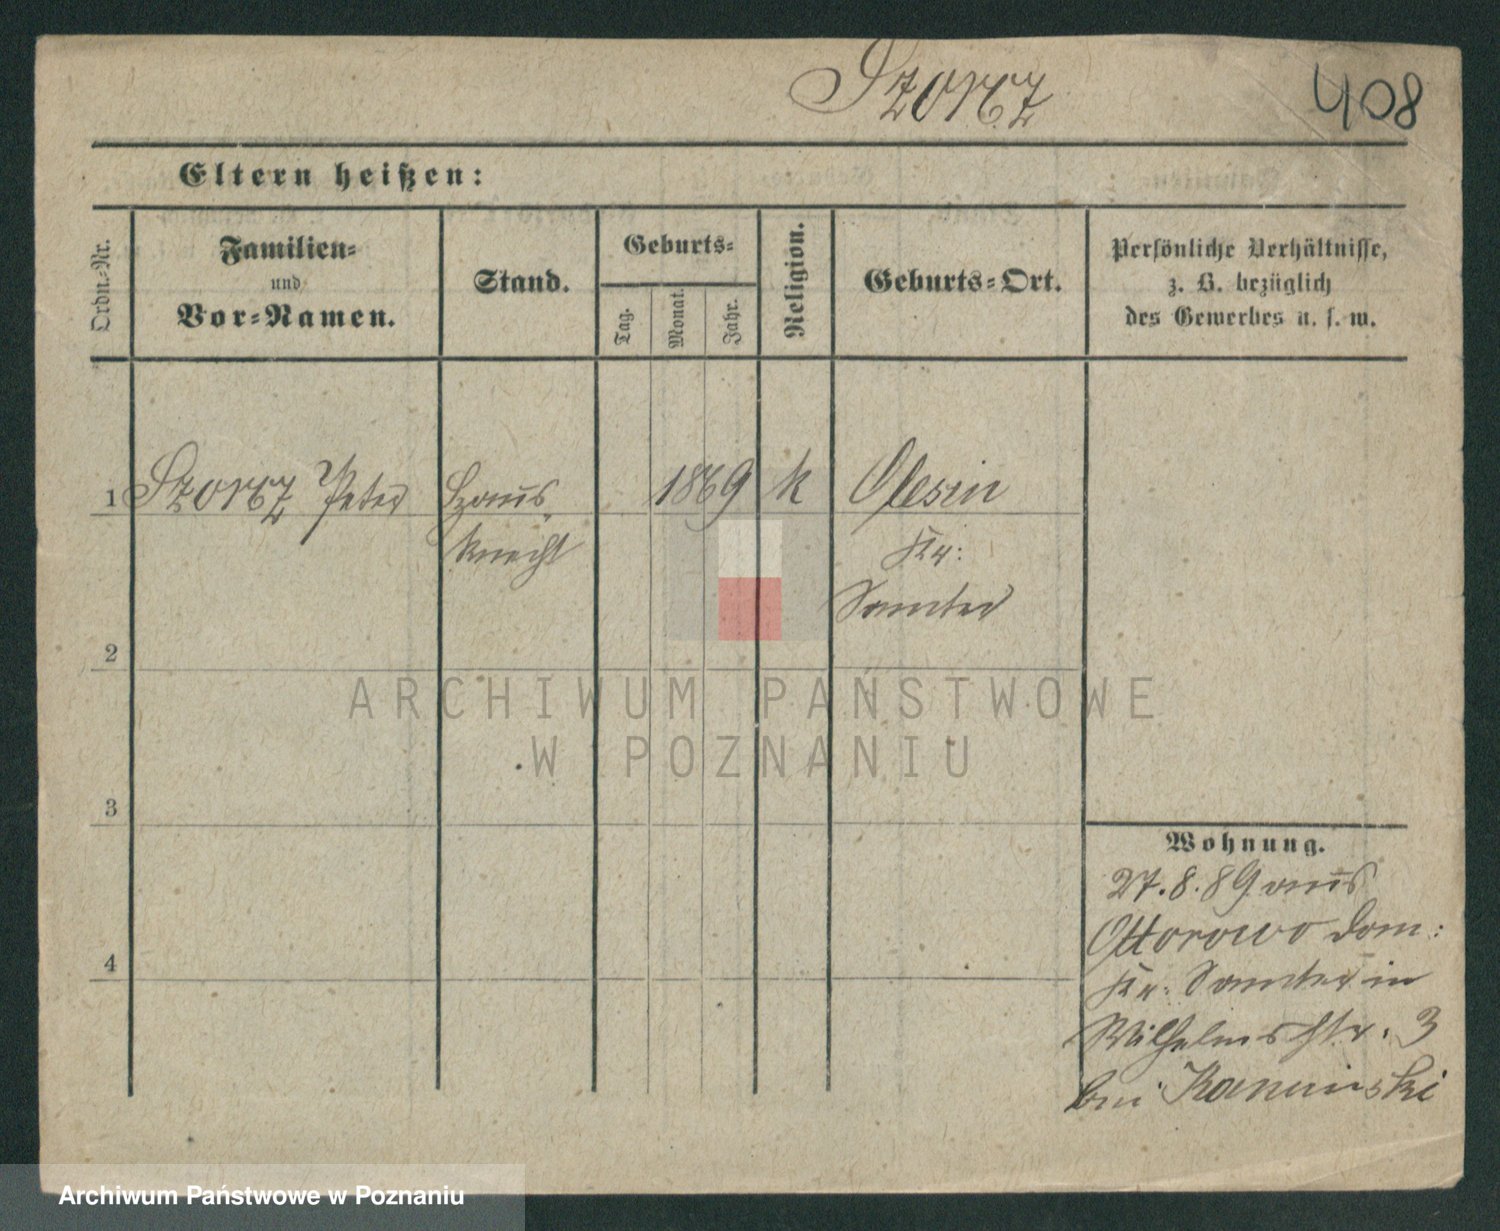 Szortz
408
Eltern heißen:
Ordn.-Nr.
Familien-
und
Vor-Namen.
Stand.
Geburts-
Tag.
Monat.
Jahr.
Religion.
Geburts-Ort.
Persönliche Verhältnisse,
z. B. bezüglich
des Gewerbes u. s. w.
1 Szortz Peter Haus 1869 k Olesin
knecht Kr:
Samter
2
3
4
Wohnung.
27.8.89 aus
Ottorowo Dom:
Kr. Samter in
Wilhelmsstr. 3
bei Kaminski
ARCHIWUM PAŃSTWOWE
W POZNANIU
Archiwum Państwowe w Poznaniu